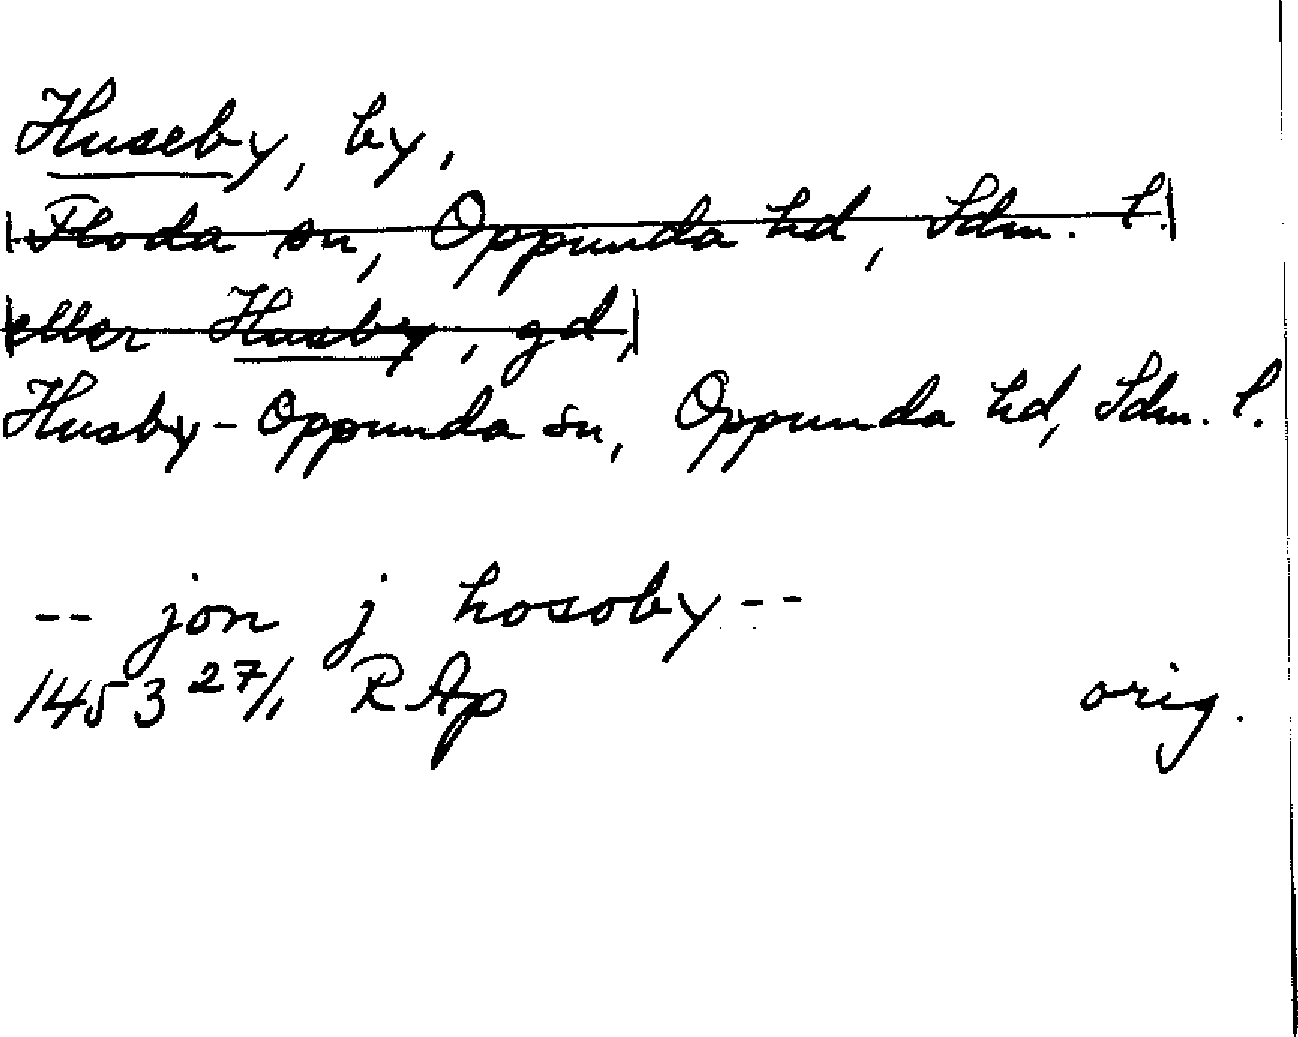 Huseby, by,
Floda sn, Oppunda hd, Sdm. l.
eller Husby, gd,
Husby-Oppunda sn, Oppunda hd, Sdm. l.
-- jon j hosoby --
1453 27/1 RAp orig.